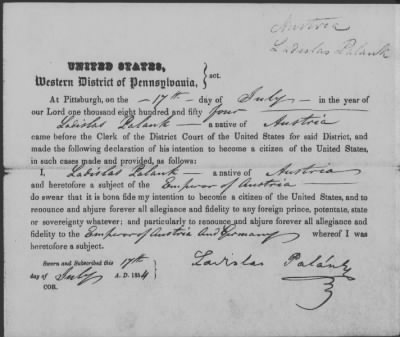 Austria
Ladislas Palank
UNITED STATES,
Western District of Pennsylvania, } sct.
At Pittsburgh, on the 17th day of July in the year of
our Lord one thousand eight hundred and fifty four
Ladislas Palank a native of Austria
came before the Clerk of the District Court of the United States for said District, and
made the following declaration of his intention to become a citizen of the United States,
in such cases made and provided, as follows:
I, Ladislas Palank a native of Austria
and heretofore a subject of the Emperor of Austria
do swear that it is bona fide my intention to become a citizen of the United States, and to
renounce and abjure forever all allegiance and fidelity to any foreign prince, potentate, state
or sovereignty whatever; and particularly to renounce and abjure forever all allegiance and
fidelity to the Emperor of Austria And Germany whereof I was
heretofore a subject.
Sworn and Subscribed this 17th
day of July A. D. 1854
COR.
Ladislas Palánk